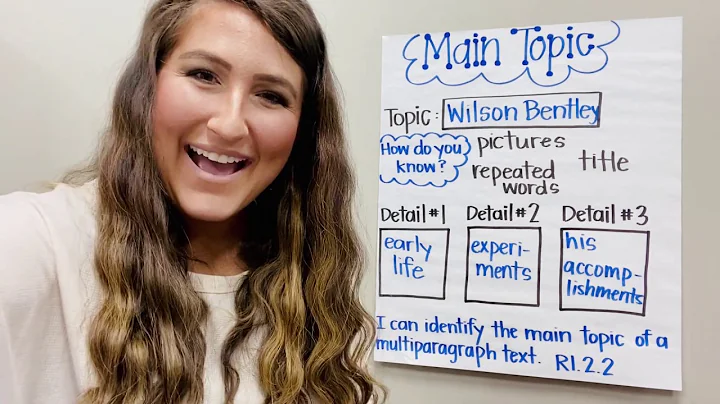 Main Topic
Topic: Wilson Bentley
How do you
know?
pictures
title
repeated
words
Detail #1
Detail #2
Detail #3
early
life
experi-
ments
his
accomp-
lishments
I can identify the main topic of a
multiparagraph text. RI.2.2